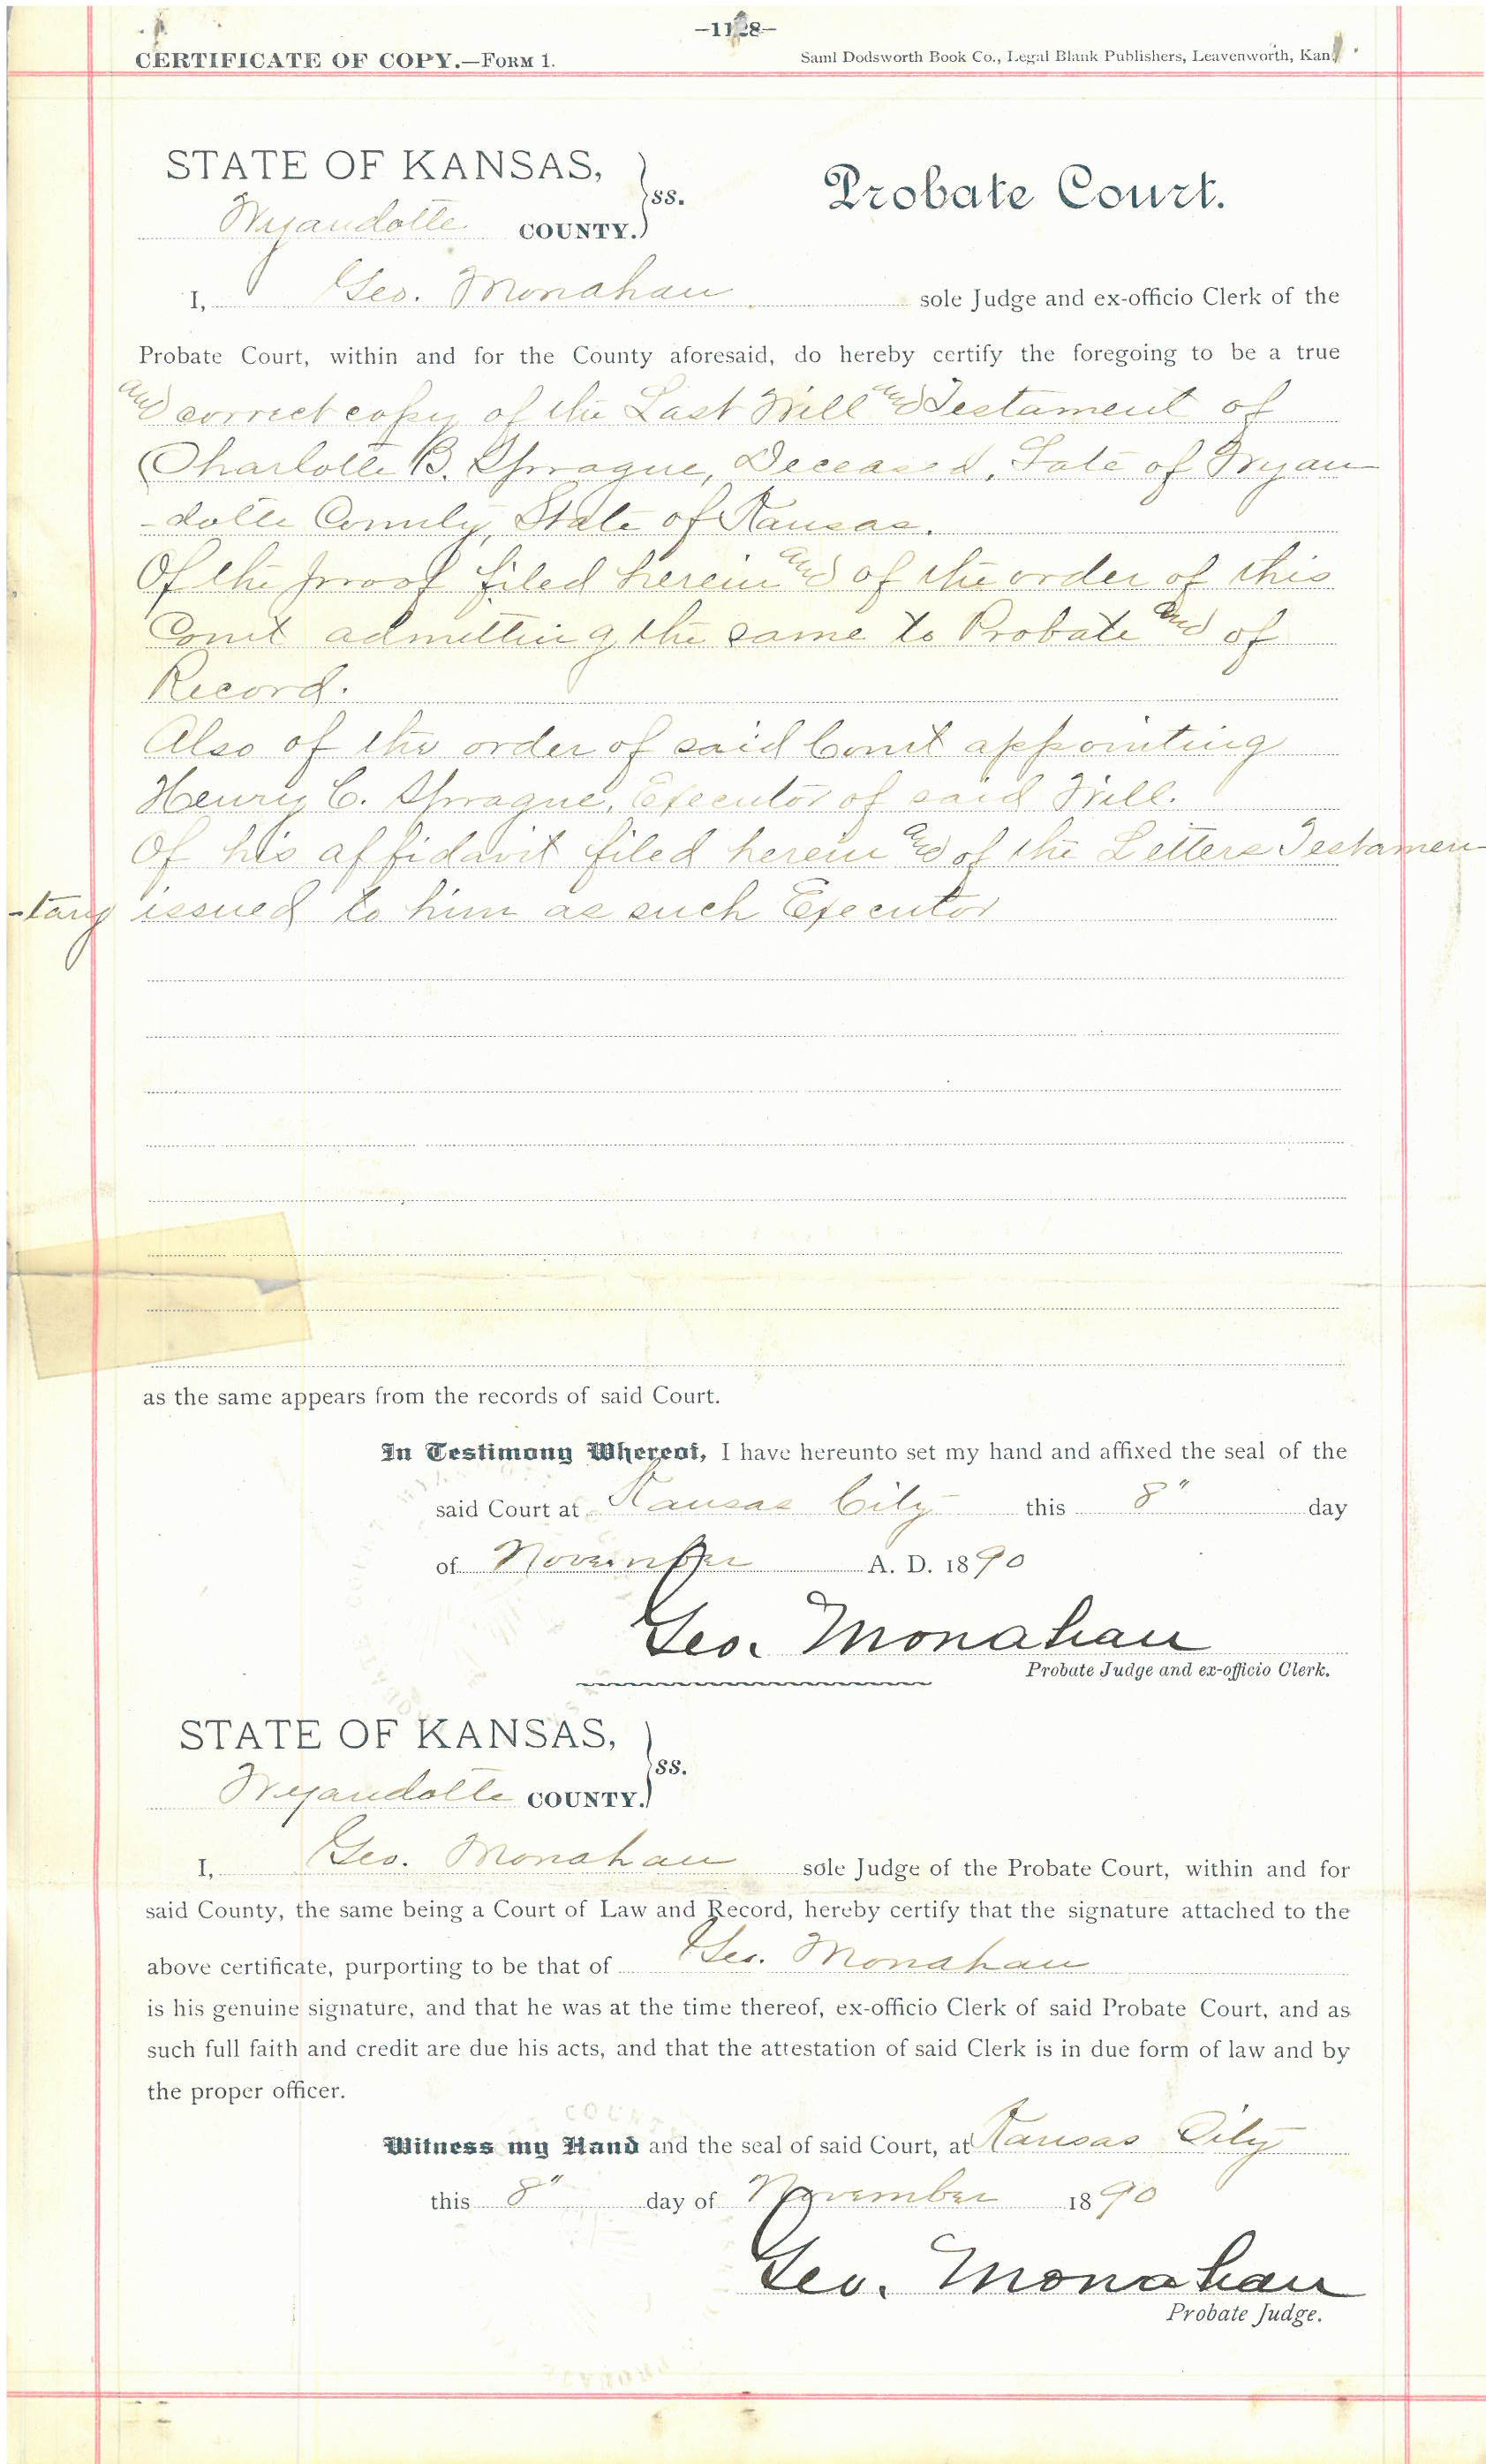 –1128–
CERTIFICATE OF COPY.—FORM 1.
Saml Dodsworth Book Co., Legal Blank Publishers, Leavenworth, Kan.
STATE OF KANSAS,
Wyandotte COUNTY.
ss.
Probate Court.
I, Geo. Monahan sole Judge and ex-officio Clerk of the
Probate Court, within and for the County aforesaid, do hereby certify the foregoing to be a true
and correct copy of the Last Will and Testament of
Charlotte B. Sprague, Deceased, Late of Wyan
-dotte County, State of Kansas.
Of the proof filed herein and of the order of this
Court admitting the same to Probate and of
Record.
Also of the order of said Court appointing
Henry C. Sprague, Executor of said Will.
Of his affidavit filed herein and of the Letters Testamen
-tary issued to him as such Executor
as the same appears from the records of said Court.
In Testimony Whereof, I have hereunto set my hand and affixed the seal of the
said Court at Kansas City this 8" day
of November A. D. 1890
Geo. Monahan
Probate Judge and ex-officio Clerk.
STATE OF KANSAS,
Wyandotte COUNTY.
ss.
I, Geo. Monahan sole Judge of the Probate Court, within and for
said County, the same being a Court of Law and Record, hereby certify that the signature attached to the
above certificate, purporting to be that of Geo. Monahan
is his genuine signature, and that he was at the time thereof, ex-officio Clerk of said Probate Court, and as
such full faith and credit are due his acts, and that the attestation of said Clerk is in due form of law and by
the proper officer.
Witness my Hand and the seal of said Court, at Kansas City
this 8" day of November 1890
Geo. Monahan
Probate Judge.